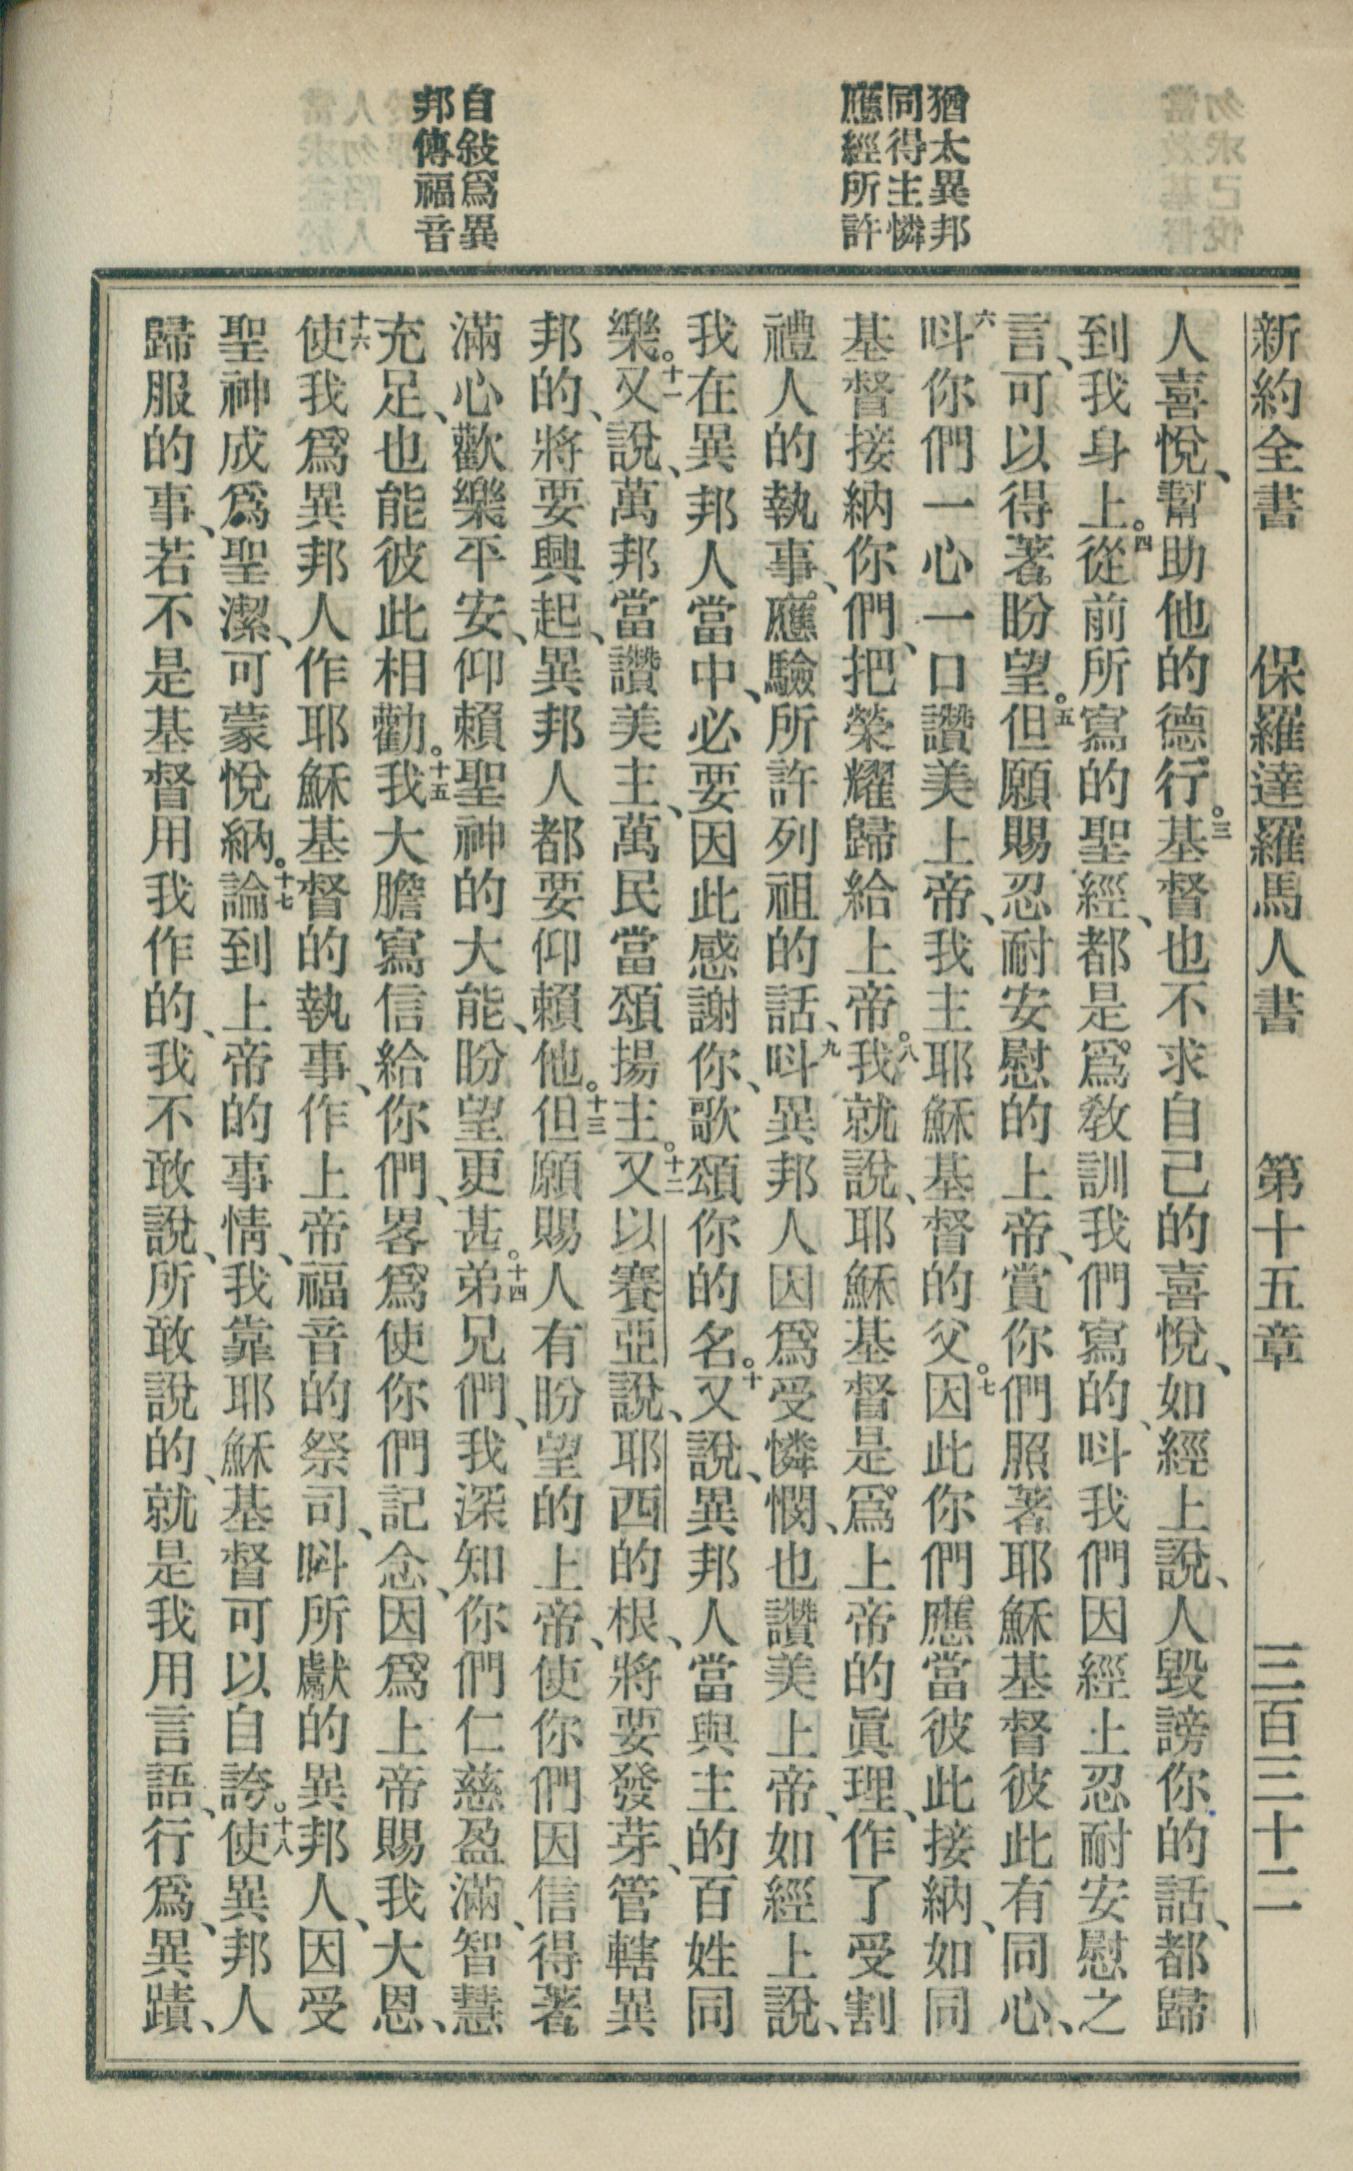 新約全書 保羅達羅馬人書 第十五章 三百三十二
猶太異邦
同得主憐
應經所許
自敍爲異
邦傳福音
人喜悅、幫助他的德行。三基督也不求自己的喜悅、如經上說、人毀謗你的話、都歸
到我身上。四從前所寫的聖經、都是爲教訓我們寫的、呌我們因經上忍耐安慰之
言、可以得著盼望。五但願賜忍耐安慰的上帝、賞你們照著耶穌基督彼此有同心、
六呌你們一心一口讚美上帝、我主耶穌基督的父。七因此你們應當彼此接納、如同
基督接納你們、把榮耀歸給上帝。八我就說、耶穌基督是爲上帝的眞理、作了受割
禮人的執事、應驗所許列祖的話、九呌異邦人因爲受憐憫、也讚美上帝、如經上說、
我在異邦人當中、必要因此感謝你、歌頌你的名。十又說、異邦人當與主的百姓同
樂。十一又說、萬邦當讚美主、萬民當頌揚主。十二又以賽亞說、耶西的根、將要發芽、管轄異
邦的、將要興起、異邦人都要仰賴他。十三但願賜人有盼望的上帝、使你們因信得著
滿心歡樂平安、仰賴聖神的大能、盼望更甚。十四弟兄們、我深知你們仁慈盈滿、智慧
充足、也能彼此相勸。十五我大膽寫信給你們、畧爲使你們記念、因爲上帝賜我大恩、
十六使我爲異邦人作耶穌基督的執事、作上帝福音的祭司、呌所獻的異邦人、因受
聖神成爲聖潔、可蒙悅納。十七論到上帝的事情、我靠耶穌基督可以自誇。十八使異邦人
歸服的事、若不是基督用我作的、我不敢說、所敢說的、就是我用言語、行爲、異蹟、